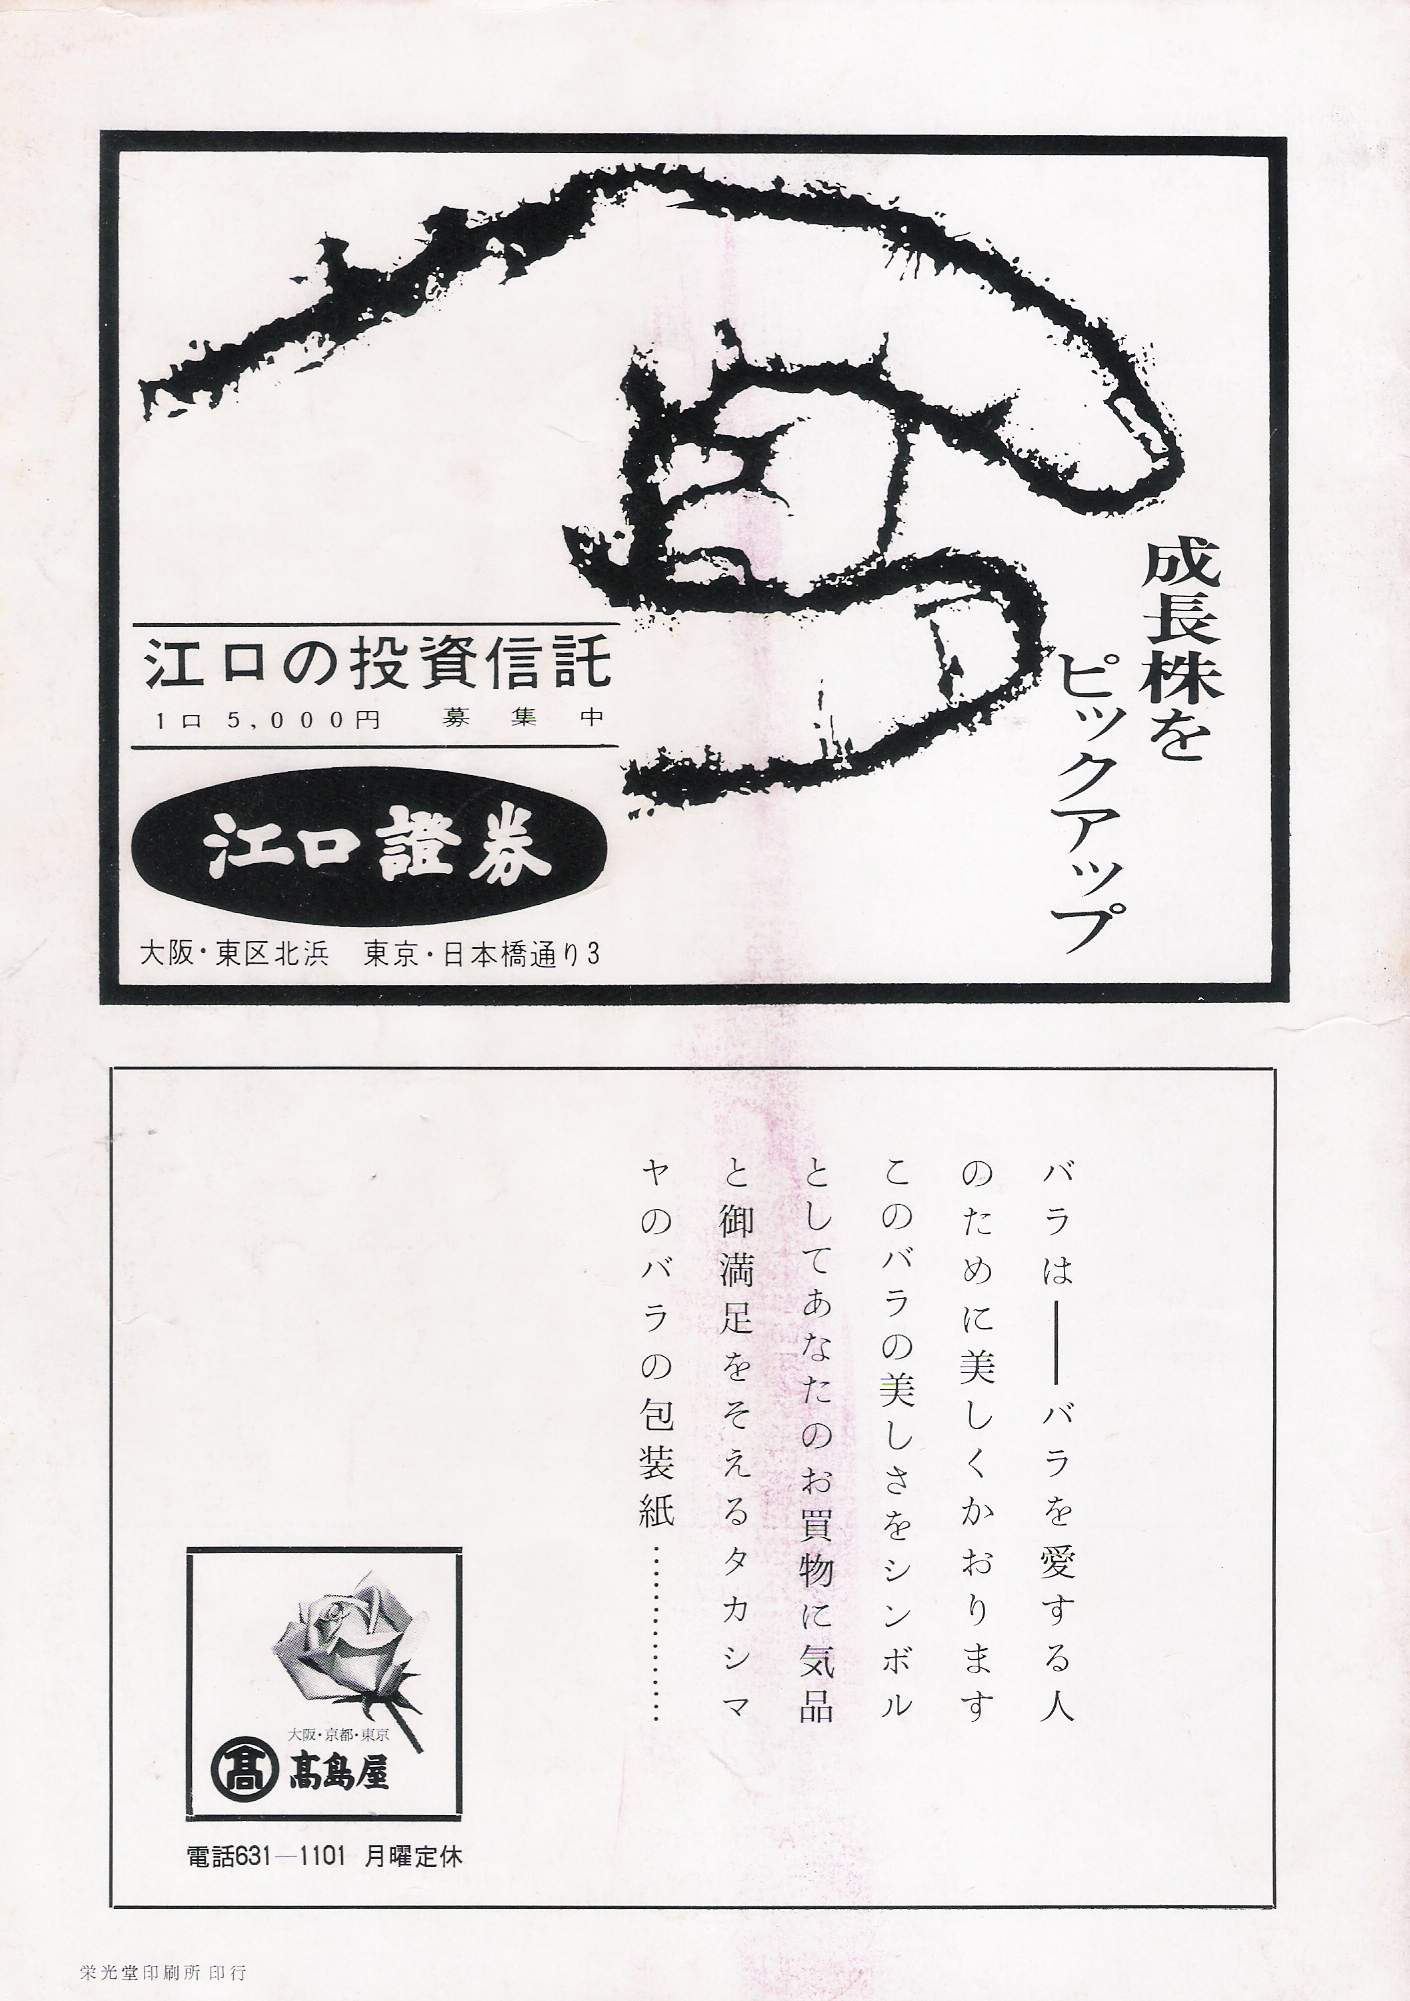 成長株を
ピックアップ
江口の投資信託
1口 5,000円 募集中
江口證券
大阪・東区北浜 東京・日本橋通り3
バラは――バラを愛する人
のために美しくかおります
このバラの美しさをシンボル
としてあなたのお買物に気品
と御満足をそえるタカシマ
ヤのバラの包装紙…………
大阪・京都・東京
髙
髙島屋
電話631―1101 月曜定休
栄光堂印刷所 印行